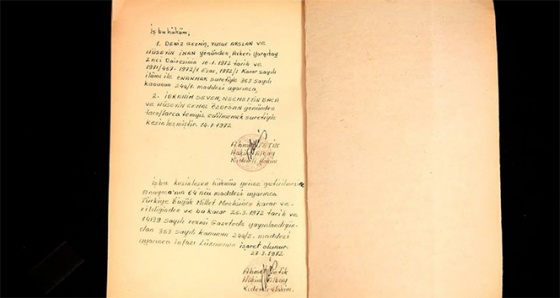 İş bu hüküm,
1. DENİZ GEZMİŞ, YUSUF ARSLAN ve
HÜSEYİN İNAN yönünden, Askeri Yargıtay
2 nci Dairesinin 10.1.1972 tarih ve
sayılı
ilâmı ile ONANMAK suretiyle 353 sayılı
kanunun maddesi uyarınca,
2. İBRAHİM SEVEN, NECMETTİN BACA
ve HÜSEYİN CEMAL ÖZDOĞAN yönünden
taraflarca temyiz edilmemek suretiyle
kesinleşmiştir. 1972
Hâkim
Kıdemli
İşbu kesinleşen hükmün yerine getirilmesine
Anayasa'nın 64 ncü maddesi uyarınca
Türkiye Büyük Millet Meclisince karar ve-
rildiğinden ve bu karar 25.3.1972 tarih ve
14139 sayılı resmî Gazetede yayınlandığın-
dan 353 sayılı kanunun maddesi
uyarınca infazı lüzumuna işaret olunur.
1972
Hâkim